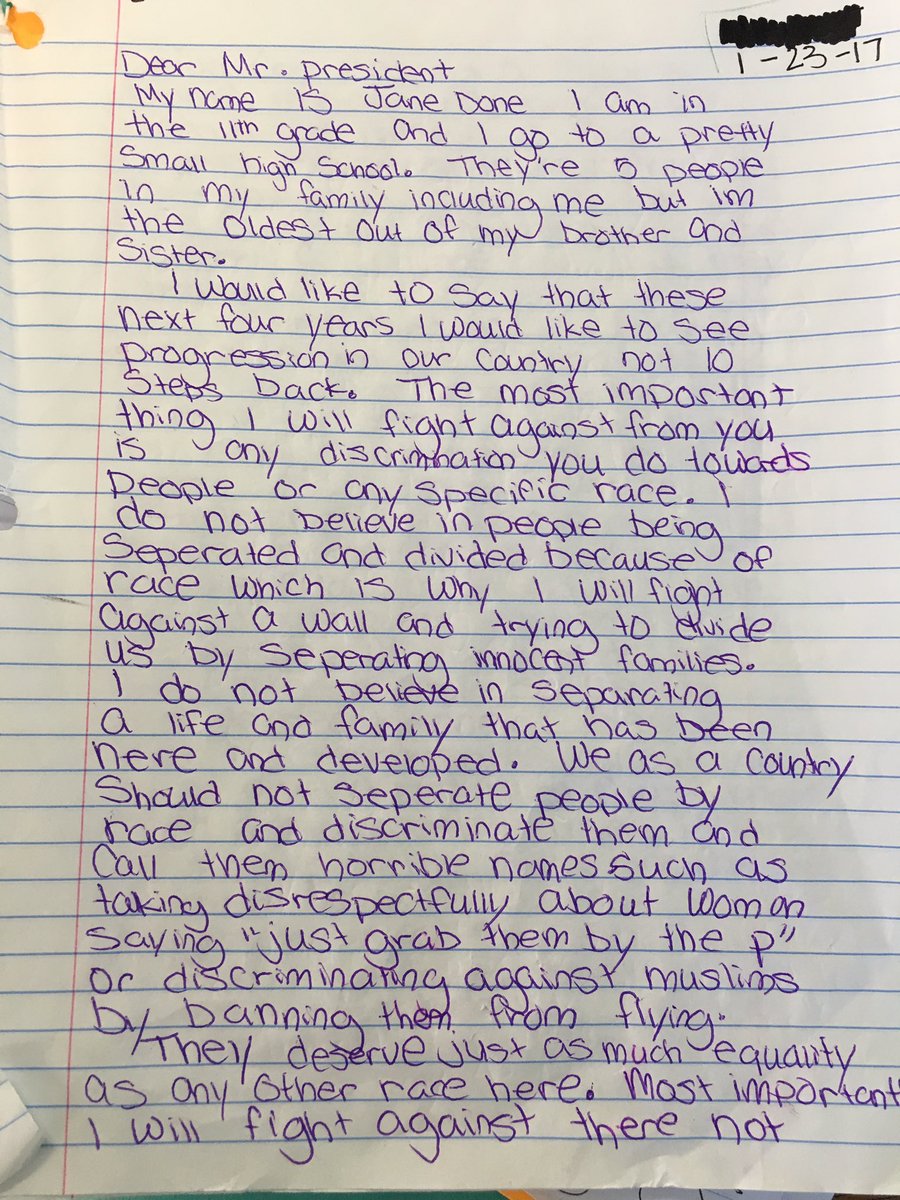 1-23-17
Dear Mr. president
My name is Jane Done I am in
the 11th grade and I go to a pretty
small high school. They're 5 people
in my family including me but im
the oldest out of my brother and
sister.
I would like to say that these
next four years I would like to see
progression in our country not 10
steps back. The most important
thing I will fight against from you
is any discrimination you do towads
people or any specific race. I
do not believe in people being
seperated and divided because of
race which is why I will fight
against a wall and trying to divide
us by seperating innocent families.
I do not believe in separating
a life and family that has been
here and developed. We as a country
should not seperate people by
race and discriminate them and
call them horrible names such as
taking disrespectfully about woman
saying "just grab them by the p"
or discriminating against muslims
by banning them from flying.
They deserve just as much equality
as any other race here. Most important
I will fight against there not